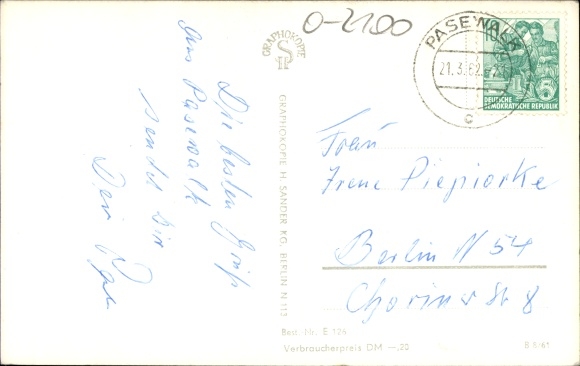 Die besten Grüße
aus Pasewalk
sendet Dir
Dein
GRAPHOKOPIE
GRAPHOKOPIE H. SANDER KG. BERLIN N 113
Best.-Nr. E 124
Verbraucherpreis DM —,20
0-2100
PASEWALK
21.3.62
c
10
DEUTSCHE
DEMOKRATISCHE REPUBLIK
Frau
Irene Piepiorke
Berlin N 54
Choriner Str 8
B 5/61